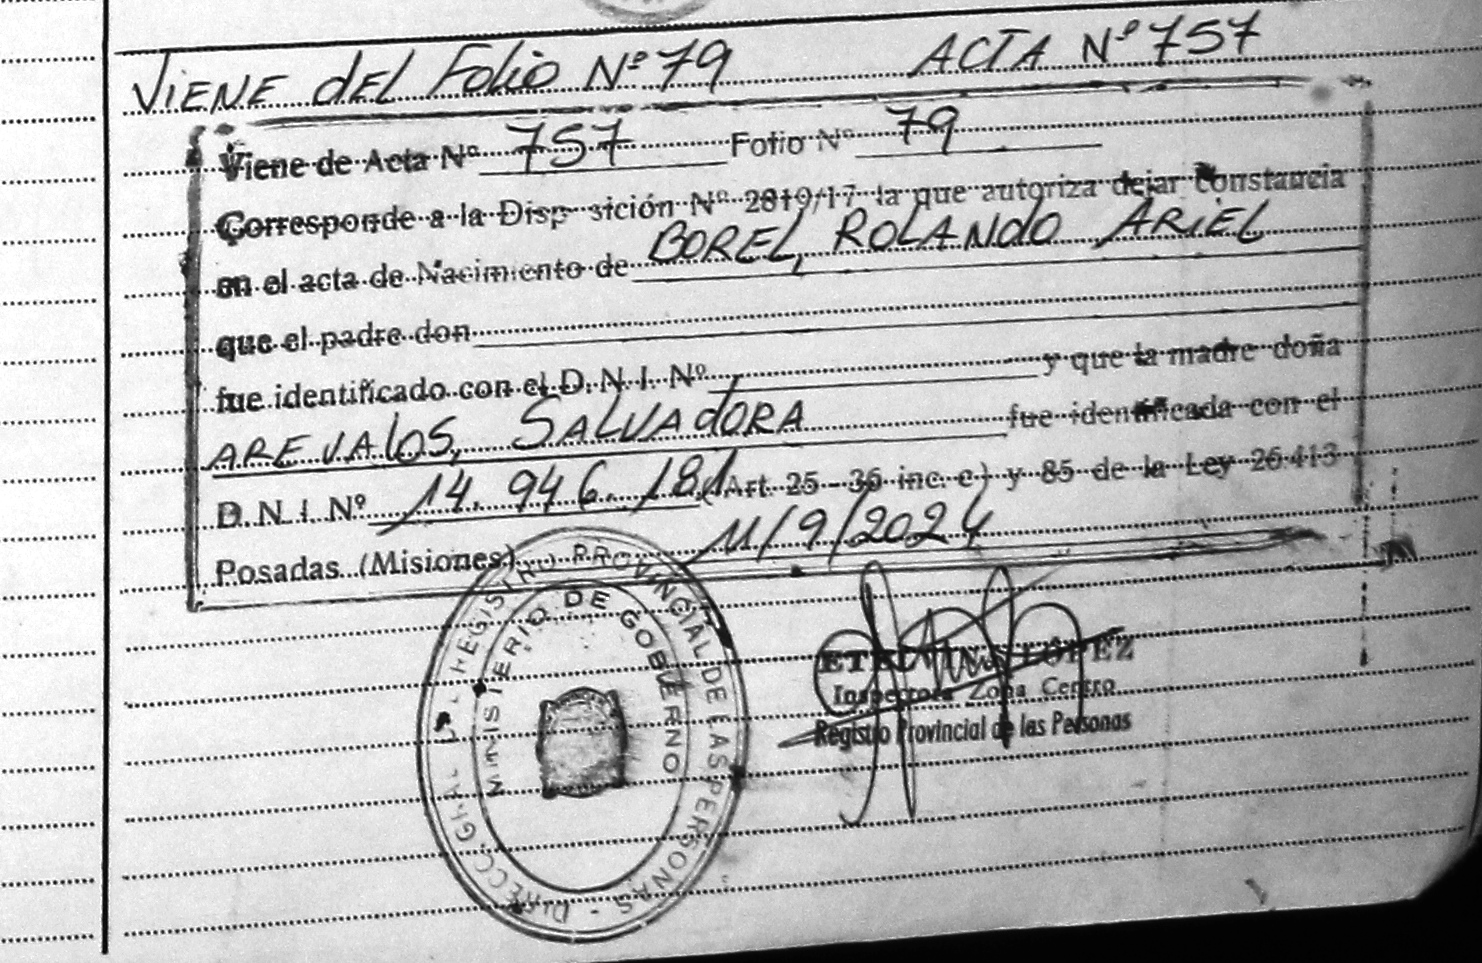 VIENE DEL FOLIO Nº 79 ACTA Nº 757
Viene de Acta Nº 757 Folio Nº 79
Corresponde a la Disp sición Nº 2819/17 la que autoriza dejar constancia
en el acta de Nacimiento de BOREL, ROLANDO ARIEL
que el padre don
fue identificado con el D. N. I. Nº y que la madre doña
AREVALOS, SALVADORA fue identificada con el
D. N. I. Nº 14.946.181 (Art. 25 - 36 inc. c) y 85 de la Ley 26 413
Posadas (Misiones) 11/9/2024
DIRECC. GRAL. REGISTRO PROVINCIAL DE LAS PERSONAS -
MINISTERIO DE GOBIERNO
LÓPEZ
Inspectora Zona Centro
Registro Provincial de las Personas